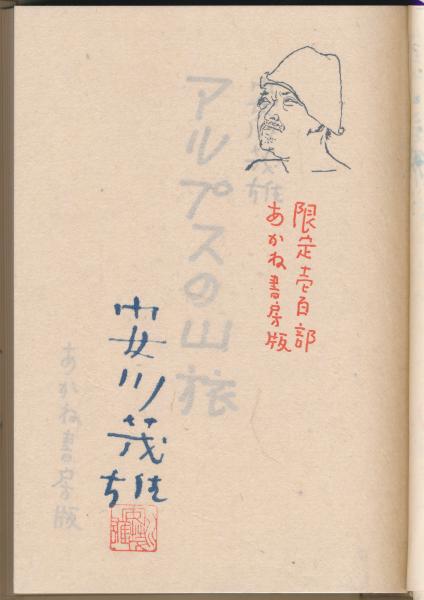 限定壱百部
あかね書房版
安川茂雄
アルプスの山旅
安川茂雄
あかね書房版